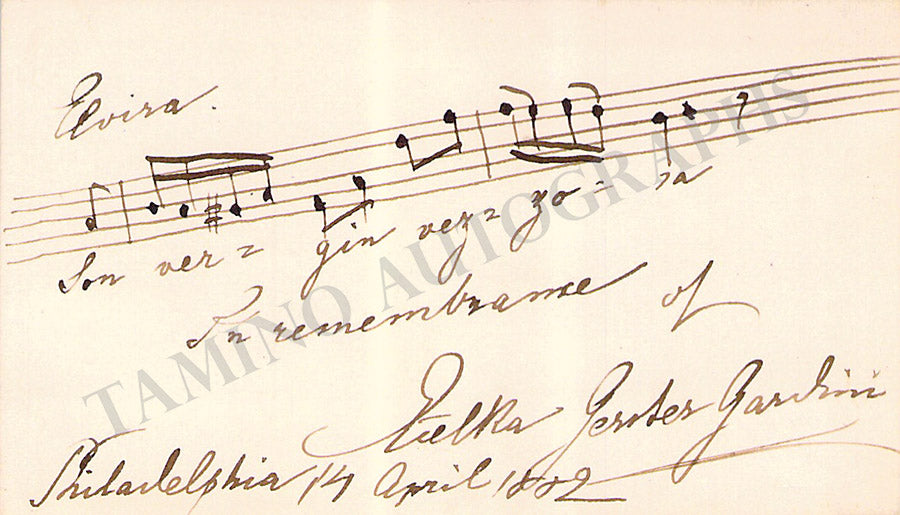 Elvira.
Son ver= gin vez= zo= sa
In remembrance of
Etelka Gerster Gardini
Philadelphia 14 April 1882
TAMINO AUTOGRAPHS